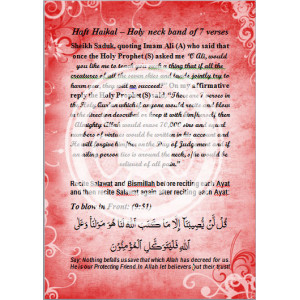 Haft Haikal – Holy neck band of 7 verses
Sheikh Saduk, quoting Imam Ali (A) who said that
once the Holy Prophet(S) asked me 'O Ali, would
you like me to teach you such a thing that if all the
creatures of all the seven skies and lands jointly try to
harm you, they will no succeed?' On my affirmative
reply the Holy Prophet (S) said 'There are 7 verses in
the Holy Qur'an which if anyone would recite and blow
in the direction described or keep it with him(written), then
Almighty Allah would erase 10,000 sins and equal
numbers of virtue would be written in his account and
He will forgive him/her on the Day of Judgement and if
an ailing person ties it around the neck, of is would be
relieved of all pain."
Recite Salawat and Bismillah before reciting each Ayat
and then recite Salawat after reciting each Ayat.
To blow in Front: (9:51)
قُل لَّن يُصِيبَنَا إِلَّا مَا كَتَبَ اللَّهُ لَنَا هُوَ مَوْلَانَا وَعَلَى
اللَّهِ فَلْيَتَوَكَّلِ الْمُؤْمِنُونَ
Say: Nothing befalls us save that which Allah has decreed for us.
He is our Protecting Friend. In Allah let believers put their trust!